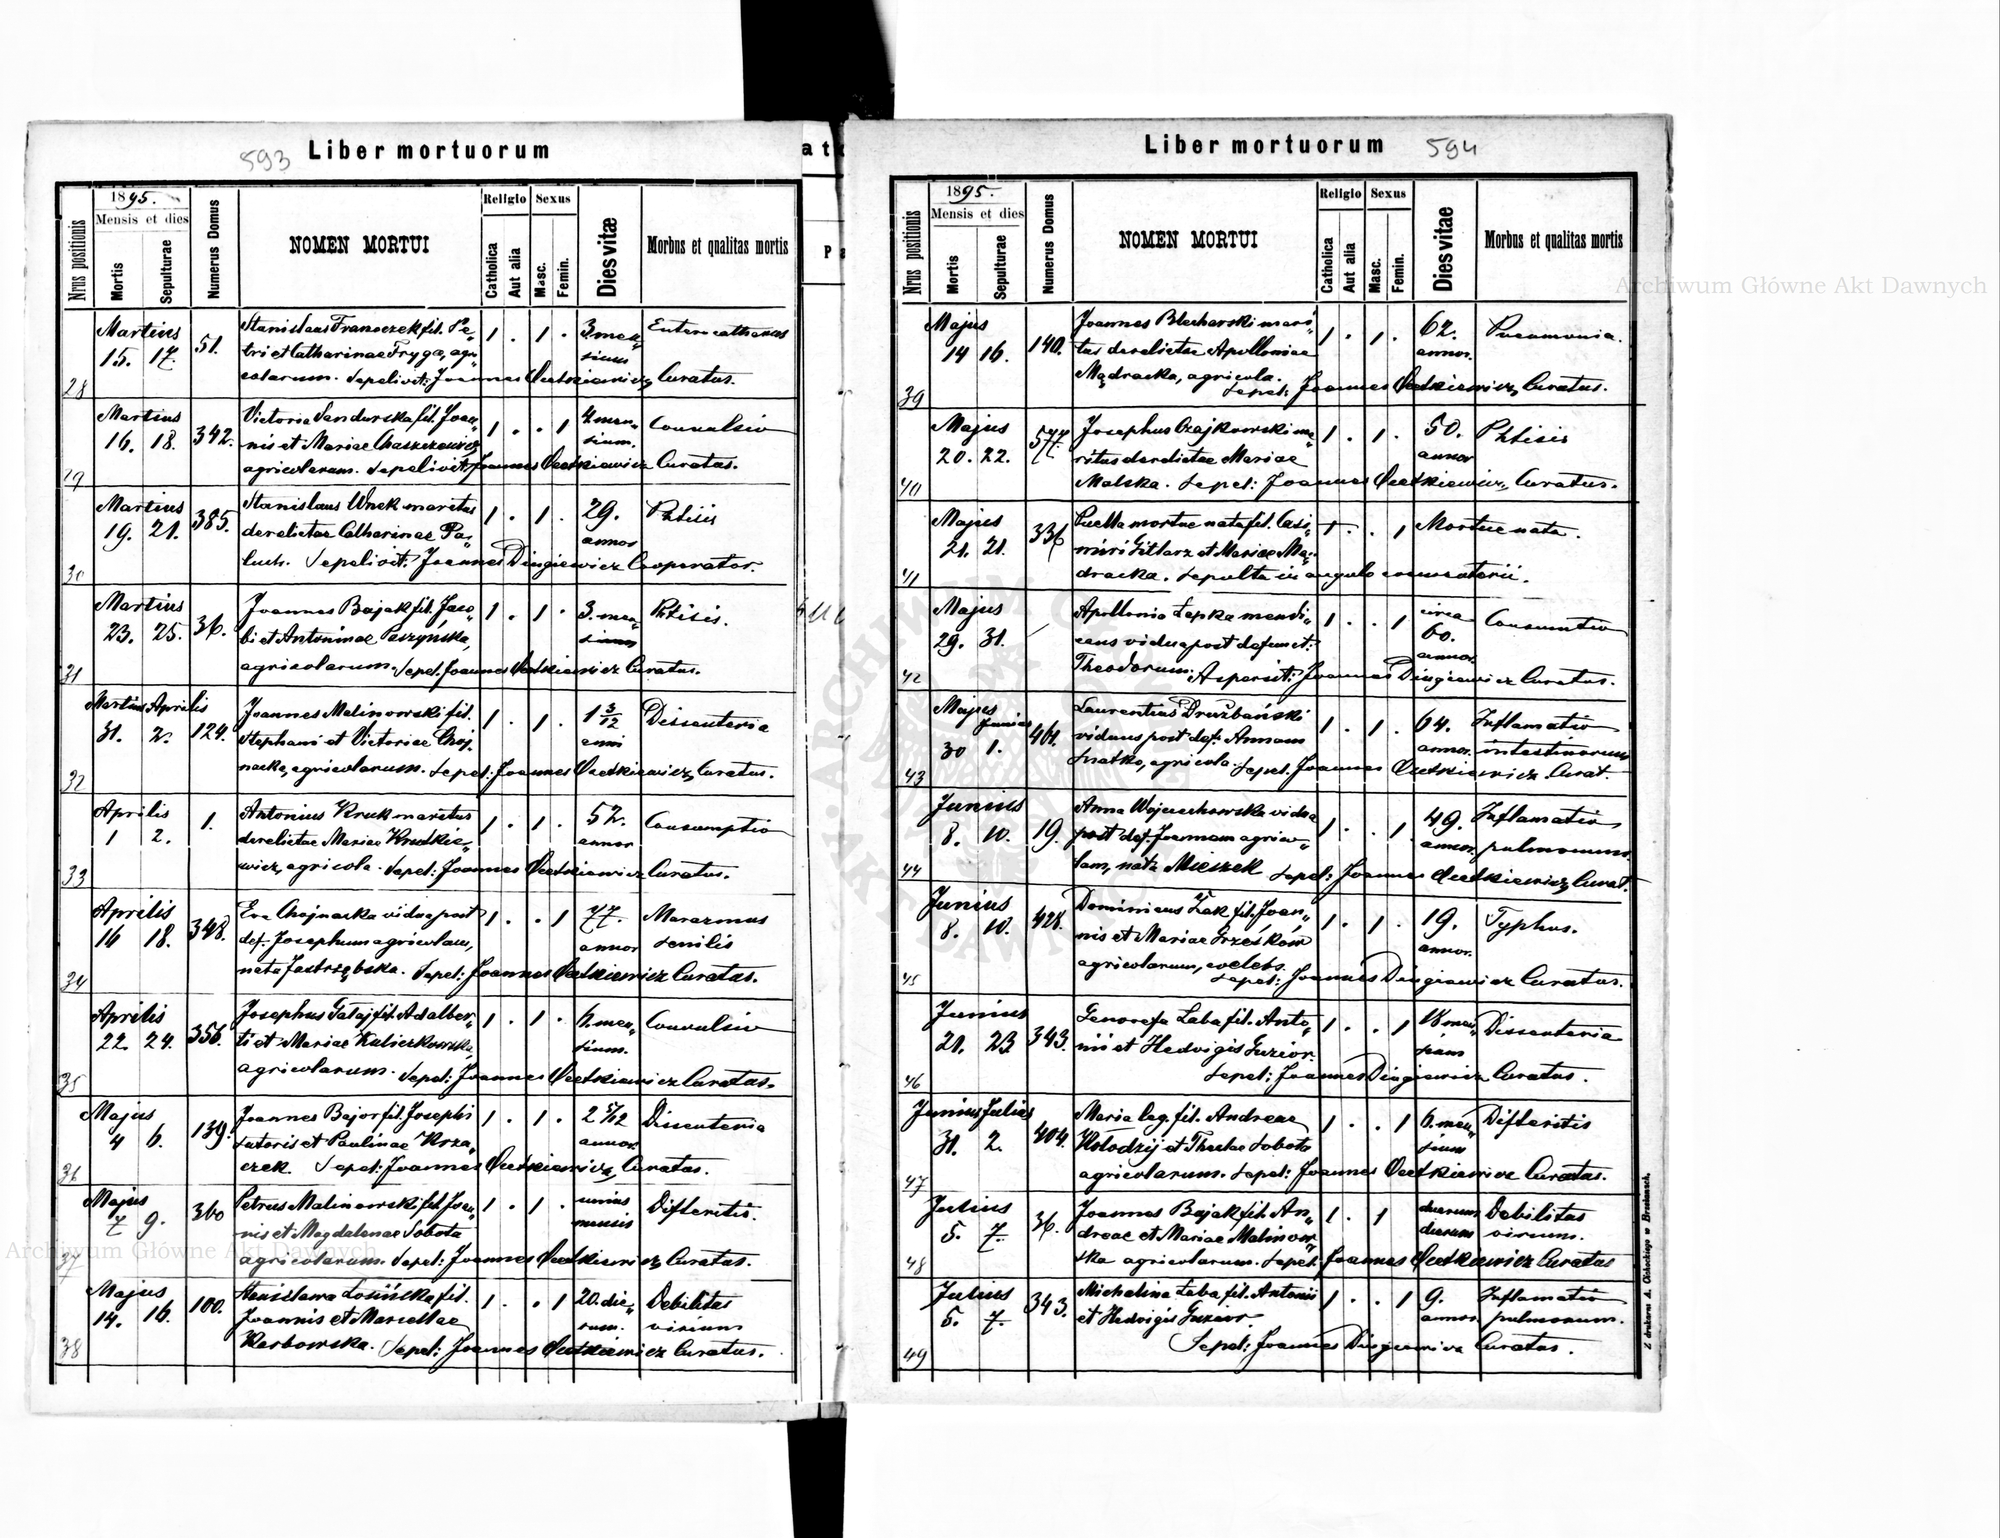 593 Liber mortuorum
1895.
Mensis et dies
Religio Sexus
Nrus positionis Mortis Sepulturae Numerus Domus NOMEN MORTUI Catholica Aut alia Masc. Femin. Dies vitae Morbus et qualitas mortis
Martius Stanislaus Franoszek fil. Pe„ 3 men„ Enterocatharus
15. 17. 51. tri et Catharinae Fryga, agri 1 . 1 . sium
28 colarum. Sepelivit: Joannes Curatus.
Martius Victoria Sendurska fil. Joan„ 4 men„ Convulsio
16. 18. 342. nis et Mariae 1 . . 1 sium.
29 agricolarum. Sepelivit: Joannes Curatus.
Martius Stanislaus Wnek maritus 29. Phtisis
19. 21. 385. derelictae Catharinae Pa„ 1 . 1 . annor
30 luch. Sepelivit: Joannes Dingiewicz Cooperator.
Martius Joannes Bajak fil. Jaco„ 3. men„ Phtisis.
23. 25. 36. bi et Antoninae Peszyńska, 1 . 1 . sium
31 agricolarum. Sepel: Joannes Curatus.
Martius Aprilis Joannes Malinowski fil. 1 3/12 Dissenteria
31. 2. 129. Stephani et Victoriae Choj„ 1 . 1 . anni
32 nacka, agricolarum. Sepel: Joannes Curatus.
Aprilis Antonius Kruk maritus 52. Consumptio
1 2. 1. derelictae Mariae 1 . 1 . annor
33 wicz, agricola. Sepel: Joannes Curatus.
Aprilis Eva Chojnacka vidua post 77. Marazmus
16 18. 348. def. Josephum agricolam, 1 . . 1 annor senilis
34 nata Jastrzębska. Sepel: Joannes Curatus.
Aprilis Josephus Gataj fil. Adalber„ 6. men„ Convulsio
22. 24. 356. ti et Mariae Kuliczkowska 1 . 1 . sium.
35 agricolarum. Sepel: Joannes Curatus.
Majus Joannes Bajor fil. Josephi 2 5/12 Dissenteria
4 6. 139. sutoris et Paulinae Krza„ 1 . 1 . annor
36 czek. Sepel: Joannes Curatus.
Majus Petrus Malinowski fil. Joan„ unius Difteritis.
7 9. 360 nis et Magdalenae Sobota 1 . 1 . mensis
37 agricolarum. Sepel: Joannes Curatus.
Majus Stanislawa Losińska fil. 20. die„ Debilitas
14. 16. 100. Joannis et Marcellae 1 . . 1 rum. virium
38 Karbowska. Sepel: Joannes Curatus.
Liber mortuorum 594
1895.
Mensis et dies
Religio Sexus
Nrus positionis Mortis Sepulturae Numerus Domus NOMEN MORTUI Catholica Aut alia Masc. Femin. Dies vitae Morbus et qualitas mortis
Majus Joannes Blecharski mari„ 62. Pneumonia.
14 16. 140. tus derelictae Apolloniae 1 . 1 . annor.
39 Mądracka, agricola. Sepel: Joannes Curatus.
Majus Josephus Czajkowski ma„ 50. Phtisis
20. 22. 577. ritus derelictae Mariae 1 . 1 . annor
40 Malska. Sepel: Joannes Curatus.
Majus Puella mortue nata fil. Casi„ Mortue nata.
21. 21. 336 miri Gitlarz et Mariae Mą„ 1 . . 1
41 dracka. Sepulta in angulo coemeterii.
Majus Apollonia Lepka mendi„ circa Consumtio
29. 31. cans vidua post defunct: 1 . . 1 60. annor.
42 Theodorum. Aspersit: Joannes Dingiewicz Curatus.
Majus Junius Laurentius Drużbański 64. Inflamatio
30 1. 461. viduus post def. Annam 1 . 1 . annor. intestinorum
43 Sratko, agricola. Sepel: Joannes Curat.
Junius Anna Wojciechowska vidua 49. Inflamatio
8. 10. 19. post def. Joannem agrico„ 1 . . 1 annor. pulmonum.
44 lam, nata Mieszek Sepel: Joannes Curat.
Junius Dominicus Żak fil. Joan„ 19. Typhus.
8. 10. 428. nis et Mariae Grześków 1 . 1 . annor.
45 agricolarum, coelebs. Sepel: Joannes Dingiewicz Curatus.
Junius Genorefa Laba fil. Anto„ 18 men„ Dissenteria
21. 23. 343. nii et Hedvigis Guzior. 1 . . 1 sium
46 Sepel: Joannes Dingiewicz Curatus.
Junius Julius Maria leg. fil. Andreae 6. men„ Difteritis
31. 2. 404. Kołodzij et Theclae Sobota 1 . . 1 sium
47 agricolarum. Sepel: Joannes Curatus.
Julius Joannes Bajak fil. An„ duarum Debilitas
5. 7. 36. dreae et Mariae Malinow„ 1 . 1 dierum virium.
48 ska agricolarum. Sepel: Joannes Curatus
Julius Michalina Laba fil. Antonii 9. Inflamatio
5. 7. 343. et Hedvigis Guzior. 1 . . 1 annor. pulmonum.
49 Sepel: Joannes Dingiewicz Curatus.
Z drukarni A. Cichockiego w Brzeżanach.
Archiwum Główne Akt Dawnych
Archiwum Główne Akt Dawnych